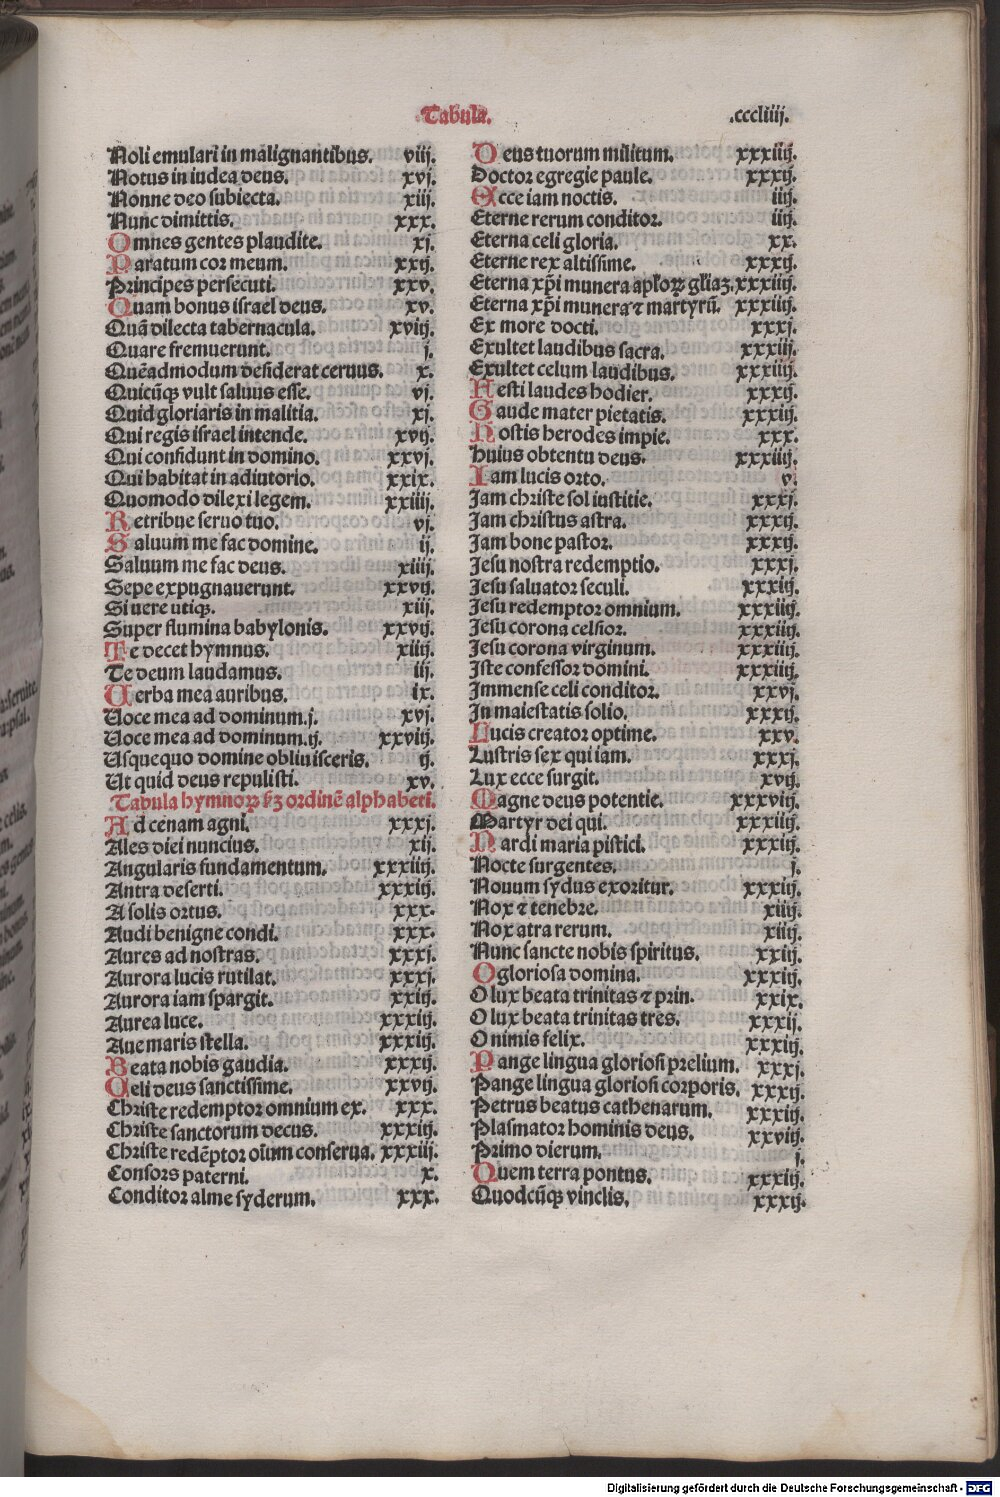 Tabula.
.cccliiij.
Noli emulari in malignantibus. viij.
Notus in iudea deus. xvj.
Nonne deo subiecta. xiij.
Nunc dimittis. xxx.
Omnes gentes plaudite. xj.
Paratum cor meum. xxij.
Principes persecuti. xxv.
Quam bonus israel deus. xv.
Quā dilecta tabernacula. xviij.
Quare fremuerunt. j.
Quēadmodum desiderat ceruus. x.
Quicūqꝫ vult saluus esse. vj.
Quid gloriaris in malitia. xj.
Qui regis israel intende. xvij.
Qui confidunt in domino. xxvj.
Qui habitat in adiutorio. xxix.
Quomodo dilexi legem. xxiiij.
Retribue seruo tuo. vj.
Saluum me fac domine. ij.
Saluum me fac deus. xiiij.
Sepe expugnauerunt. xxvij.
Si vere utiqꝫ. xiij.
Super flumina babylonis. xxvij.
Te decet hymnus. xiiij.
Te deum laudamus. iij.
Uerba mea auribus. ix.
Uoce mea ad dominum.j. xvj.
Uoce mea ad dominum.ij. xxviij.
Usquequo domine obliuisceris. ij.
Ut quid deus repulisti. xv.
Tabula hymnoꝝ ẜꝫ ordinē alphabeti.
Ad cenam agni. xxxj.
Ales diei nuncius. xij.
Angularis fundamentum. xxxiiij.
Antra deserti. xxxiij.
A solis ortus. xxx.
Audi benigne condi. xxx.
Aures ad nostras. xxxj.
Aurora lucis rutilat. xxxj.
Aurora iam spargit. xxiij.
Aurea luce. xxxiij.
Aue maris stella. xxxiij.
Beata nobis gaudia. xxxij.
Celi deus sanctissime. xxvij.
Christe redemptor omnium ex. xxx.
Christe sanctorum decus. xxxiij.
Christe redēptor oīum conserua. xxxiij.
Consors paterni. x.
Conditor alme syderum. xxx.
Deus tuorum militum. xxxiiij.
Doctor egregie paule. xxxij.
Ecce iam noctis. iiij.
Eterne rerum conditor. iiij.
Eterna celi gloria. xx.
Eterne rex altissime. xxxij.
Eterna xp̄i munera apl̄oꝝ gl̄iaꝫ.xxxiiij.
Eterna xp̄i munera ⁊ martyrū. xxxiiij.
Ex more docti. xxxj.
Exultet laudibus sacra. xxxiij.
Exultet celum laudibus. xxxiiij.
Festi laudes hodier. xxxij.
Gaude mater pietatis. xxxiij.
Hostis herodes impie. xxx.
Huius obtentu deus. xxxiiij.
Iam lucis orto. v.
Jam christe sol iustitie. xxxj.
Jam christus astra. xxxij.
Jam bone pastor. xxxij.
Jesu nostra redemptio. xxxj.
Jesu saluator seculi. xxxiij.
Jesu redemptor omnium. xxxiiij.
Jesu corona celsior. xxxiiij.
Jesu corona virginum. xxxiiij.
Iste confessor domini. xxxiiij.
Immense celi conditor. xxvj.
In maiestatis solio. xxxij.
Lucis creator optime. xxv.
Lustris sex qui iam. xxxj.
Lux ecce surgit. xvij.
Magne deus potentie. xxxviij.
Martyr dei qui. xxxiiij.
Nardi maria pistici. xxxiij.
Nocte surgentes. j.
Nouum sydus exoritur. xxxiij.
Nox ⁊ tenebre. xiiij.
Nox atra rerum. xiij.
Nunc sancte nobis spiritus. xxiij.
O gloriosa domina. xxxiij.
O lux beata trinitas ⁊ prin. xxix.
O lux beata trinitas tres. xxxij.
O nimis felix. xxxiij.
Pange lingua gloriosi prelium. xxxj.
Pange lingua gloriosi corporis. xxxij.
Petrus beatus cathenarum. xxxiij.
Plasmator hominis deus. xxviij.
Primo dierum. j.
Quem terra pontus. xxxiij.
Quodcūqꝫ vinclis. xxxij.
Digitalisierung gefördert durch die Deutsche Forschungsgemeinschaft - DFG